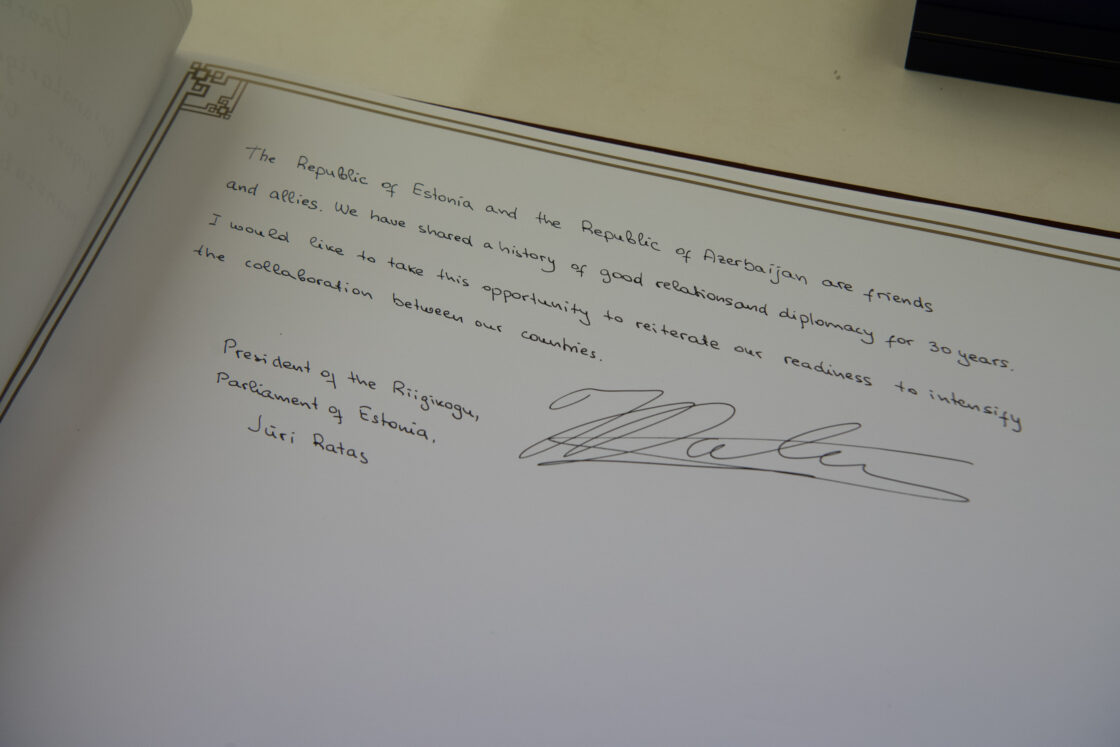 The Republic of Estonia and the Republic of Azerbaijan are friends
and allies. We have shared a history of good relations and diplomacy for 30 years.
I would like to take this opportunity to reiterate our readiness to intensify
the collaboration between our countries.
President of the Riigikogu,
Parliament of Estonia,
Jüri Ratas